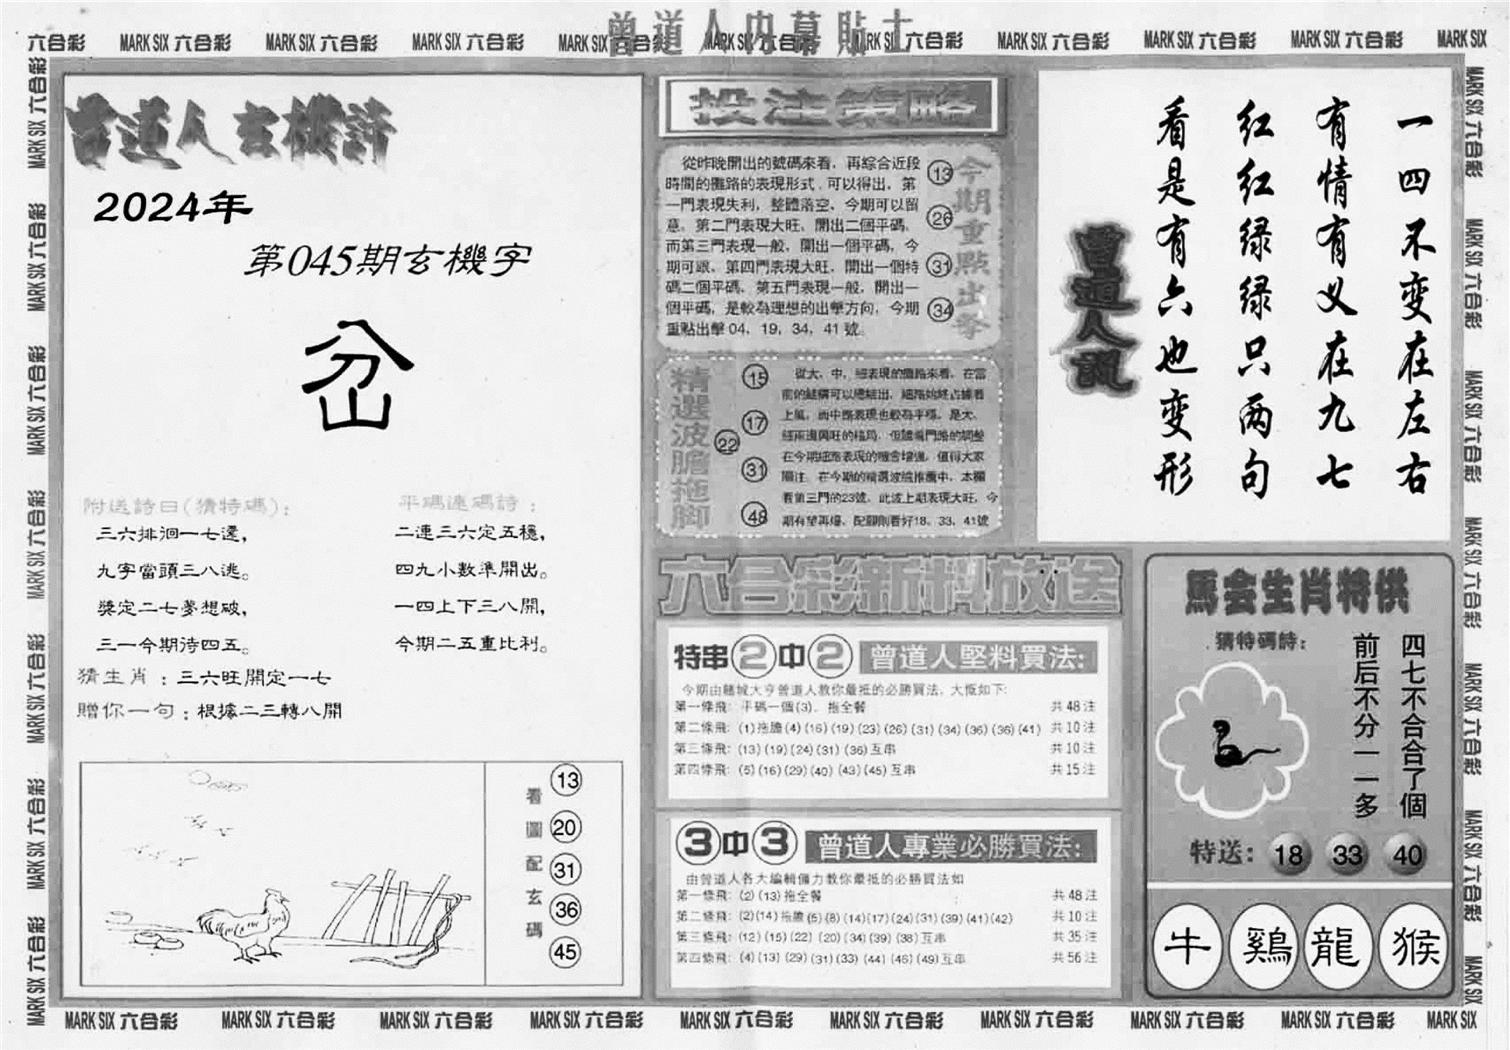 曾道人内幕貼士
六合彩 MARK SIX 六合彩 MARK SIX 六合彩 MARK SIX 六合彩 MARK SIX 六合彩 MARK SIX 六合彩 MARK SIX 六合彩 MARK SIX 六合彩 MARK SIX 六合彩 MARK SIX 六合彩 MARK SIX
曾道人玄機詩
2024年
第045期玄機字
岔
附送詩曰(猜特碼):
三六排洄一七還,
九字當頭三八逃。
獎定二七夢想破,
三一今期待四五。
平碼連碼詩:
二連三六定五穩,
四九小數準開出。
一四上下三八開,
今期二五重比利。
猜生肖:三六旺開定一七
贈你一句:根據二三轉八開
看圖配玄碼
13
20
31
36
45
投注策略
從昨晚開出的號碼來看，再綜合近段
時間的攤路的表現形式，可以得出，第
一門表現失利，整體落空，今期可以留
意。第二門表現大旺，開出二個平碼，
而第三門表現一般，開出一個平碼，今
期可跟，第四門表現大旺，開出一個特
碼二個平碼，第五門表現一般，開出一
個平碼，是較為理想的出擊方向，今期
重點出擊04，19，34，41號。
13
26
31
34
今期重點出擊
精選波膽拖脚
15
17
22
31
48
從大、中、細表現的攤路來看，在當
前的
上風，而中路表現也較為平穩，是大、
細兩邊興旺的格局，但隨着門路的調整
在今期細路表現的機會增強，值得大家
關注，在今期的精選波膽推薦中，本欄
看第三門的23號，此波上期表現大旺，今
期有望再爆，配脚則看好18、33、41號
六合彩新料放送
特串2中2 曾道人堅料買法:
今期由賭城大亨曾道人教你最抵的必勝買法，大慨如下:
第一條飛: 平碼一個(3)，拖全餐 共48注
第二條飛: (1)拖膽(4)(16)(19)(23)(26)(31)(34)(36)(36)(41) 共10注
第三條飛: (13)(19)(24)(31)(36)互串 共10注
第四條飛: (5)(16)(29)(40)(43)(45)互串 共15注
3中3 曾道人專業必勝買法:
由曾道人各大編輯備力教你最抵的必勝買法如
第一條飛: (2)(13)拖全餐 共48注
第二條飛: (2)(14)拖膽(5)(8)(14)(17)(24)(31)(39)(41)(42) 共10注
第三條飛: (12)(15)(22)(20)(34)(39)(38)互串 共35注
第四條飛: (4)(13)(29)(31)(33)(44)(46)(49)互串 共56注
一四不变在左右
有情有义在九七
红红绿绿只两句
看是有六也变形
曾道人說
馬会生肖特供
猜特碼詩:
四七不合合了個
前后不分一一多
特送: 18 33 40
牛 鷄 龍 猴
MARK SIX 六合彩 MARK SIX 六合彩 MARK SIX 六合彩 MARK SIX 六合彩 MARK SIX 六合彩 MARK SIX 六合彩 MARK SIX 六合彩 MARK SIX 六合彩 MARK SIX 六合彩 MARK SIX